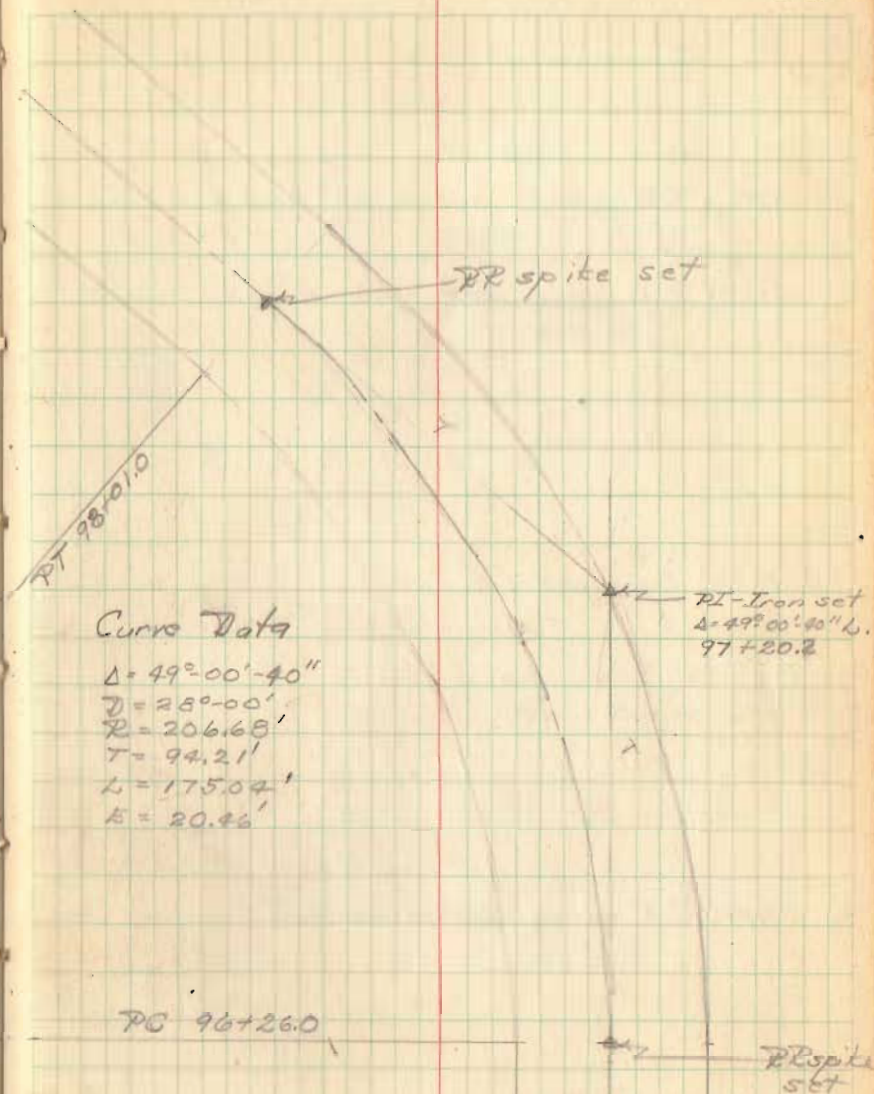 RR spike set
PT 98+01.0
PI-Iron set
Δ=49°00'40" L.
97+20.2
Curve Data
Δ= 49°-00'-40"
D = 28°-00'
R = 206.68'
T = 94.21'
L = 175.04'
E = 20.46'
PC 96+26.0
RR spike
set